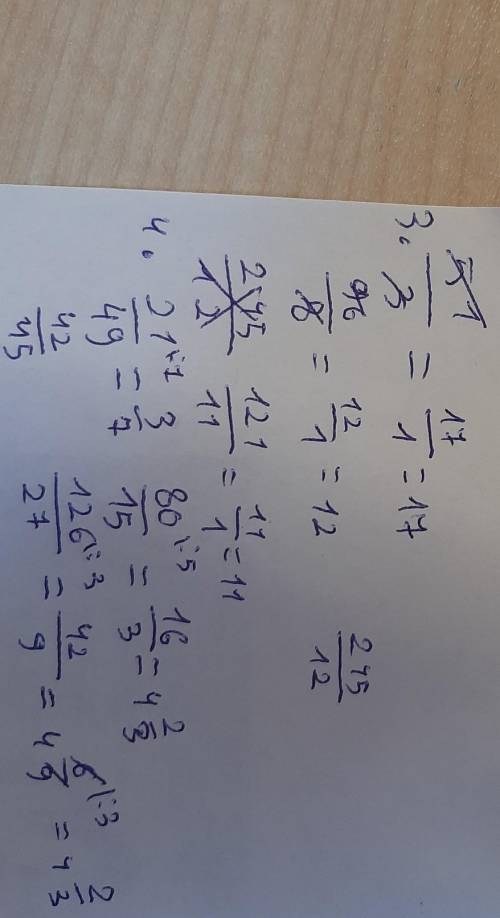 3. 51/3 = 17/1 = 17
96/8 = 12/1 = 12 245/12
245/12 121/11 = 11/1 = 11
4. 21/49 |:7 = 3/7 80/15 |:5 = 16/3 = 4 2/3
42/45 126/27 |:3 = 42/9 = 4 6/9 |:3 = 4 2/3